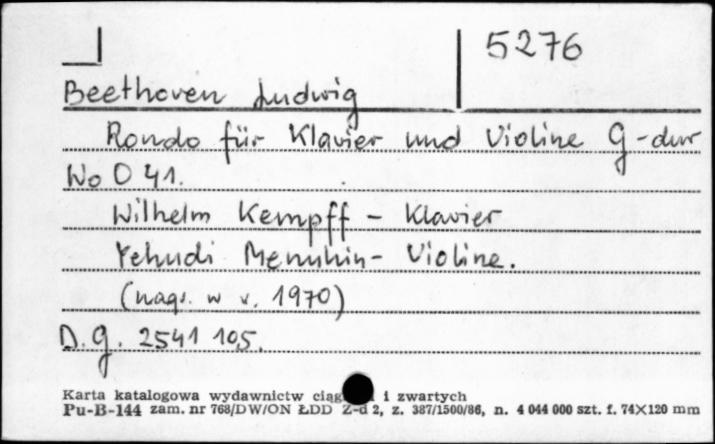 5276
Beethoven Ludwig
Rondo für Klavier und Violine G-dur
WoO 41.
Wilhelm Kempff - Klavier
Yehudi Menuhin - Violine.
(nagr. w r. 1970)
D.G. 2541 105.
Karta katalogowa wydawnictw i zwartych
Pu-B-144 zam. nr 768/DW/ON ŁDD Z-d 2, z. 387/1500/86, n. 4 044 000 szt. f. 74×120 mm